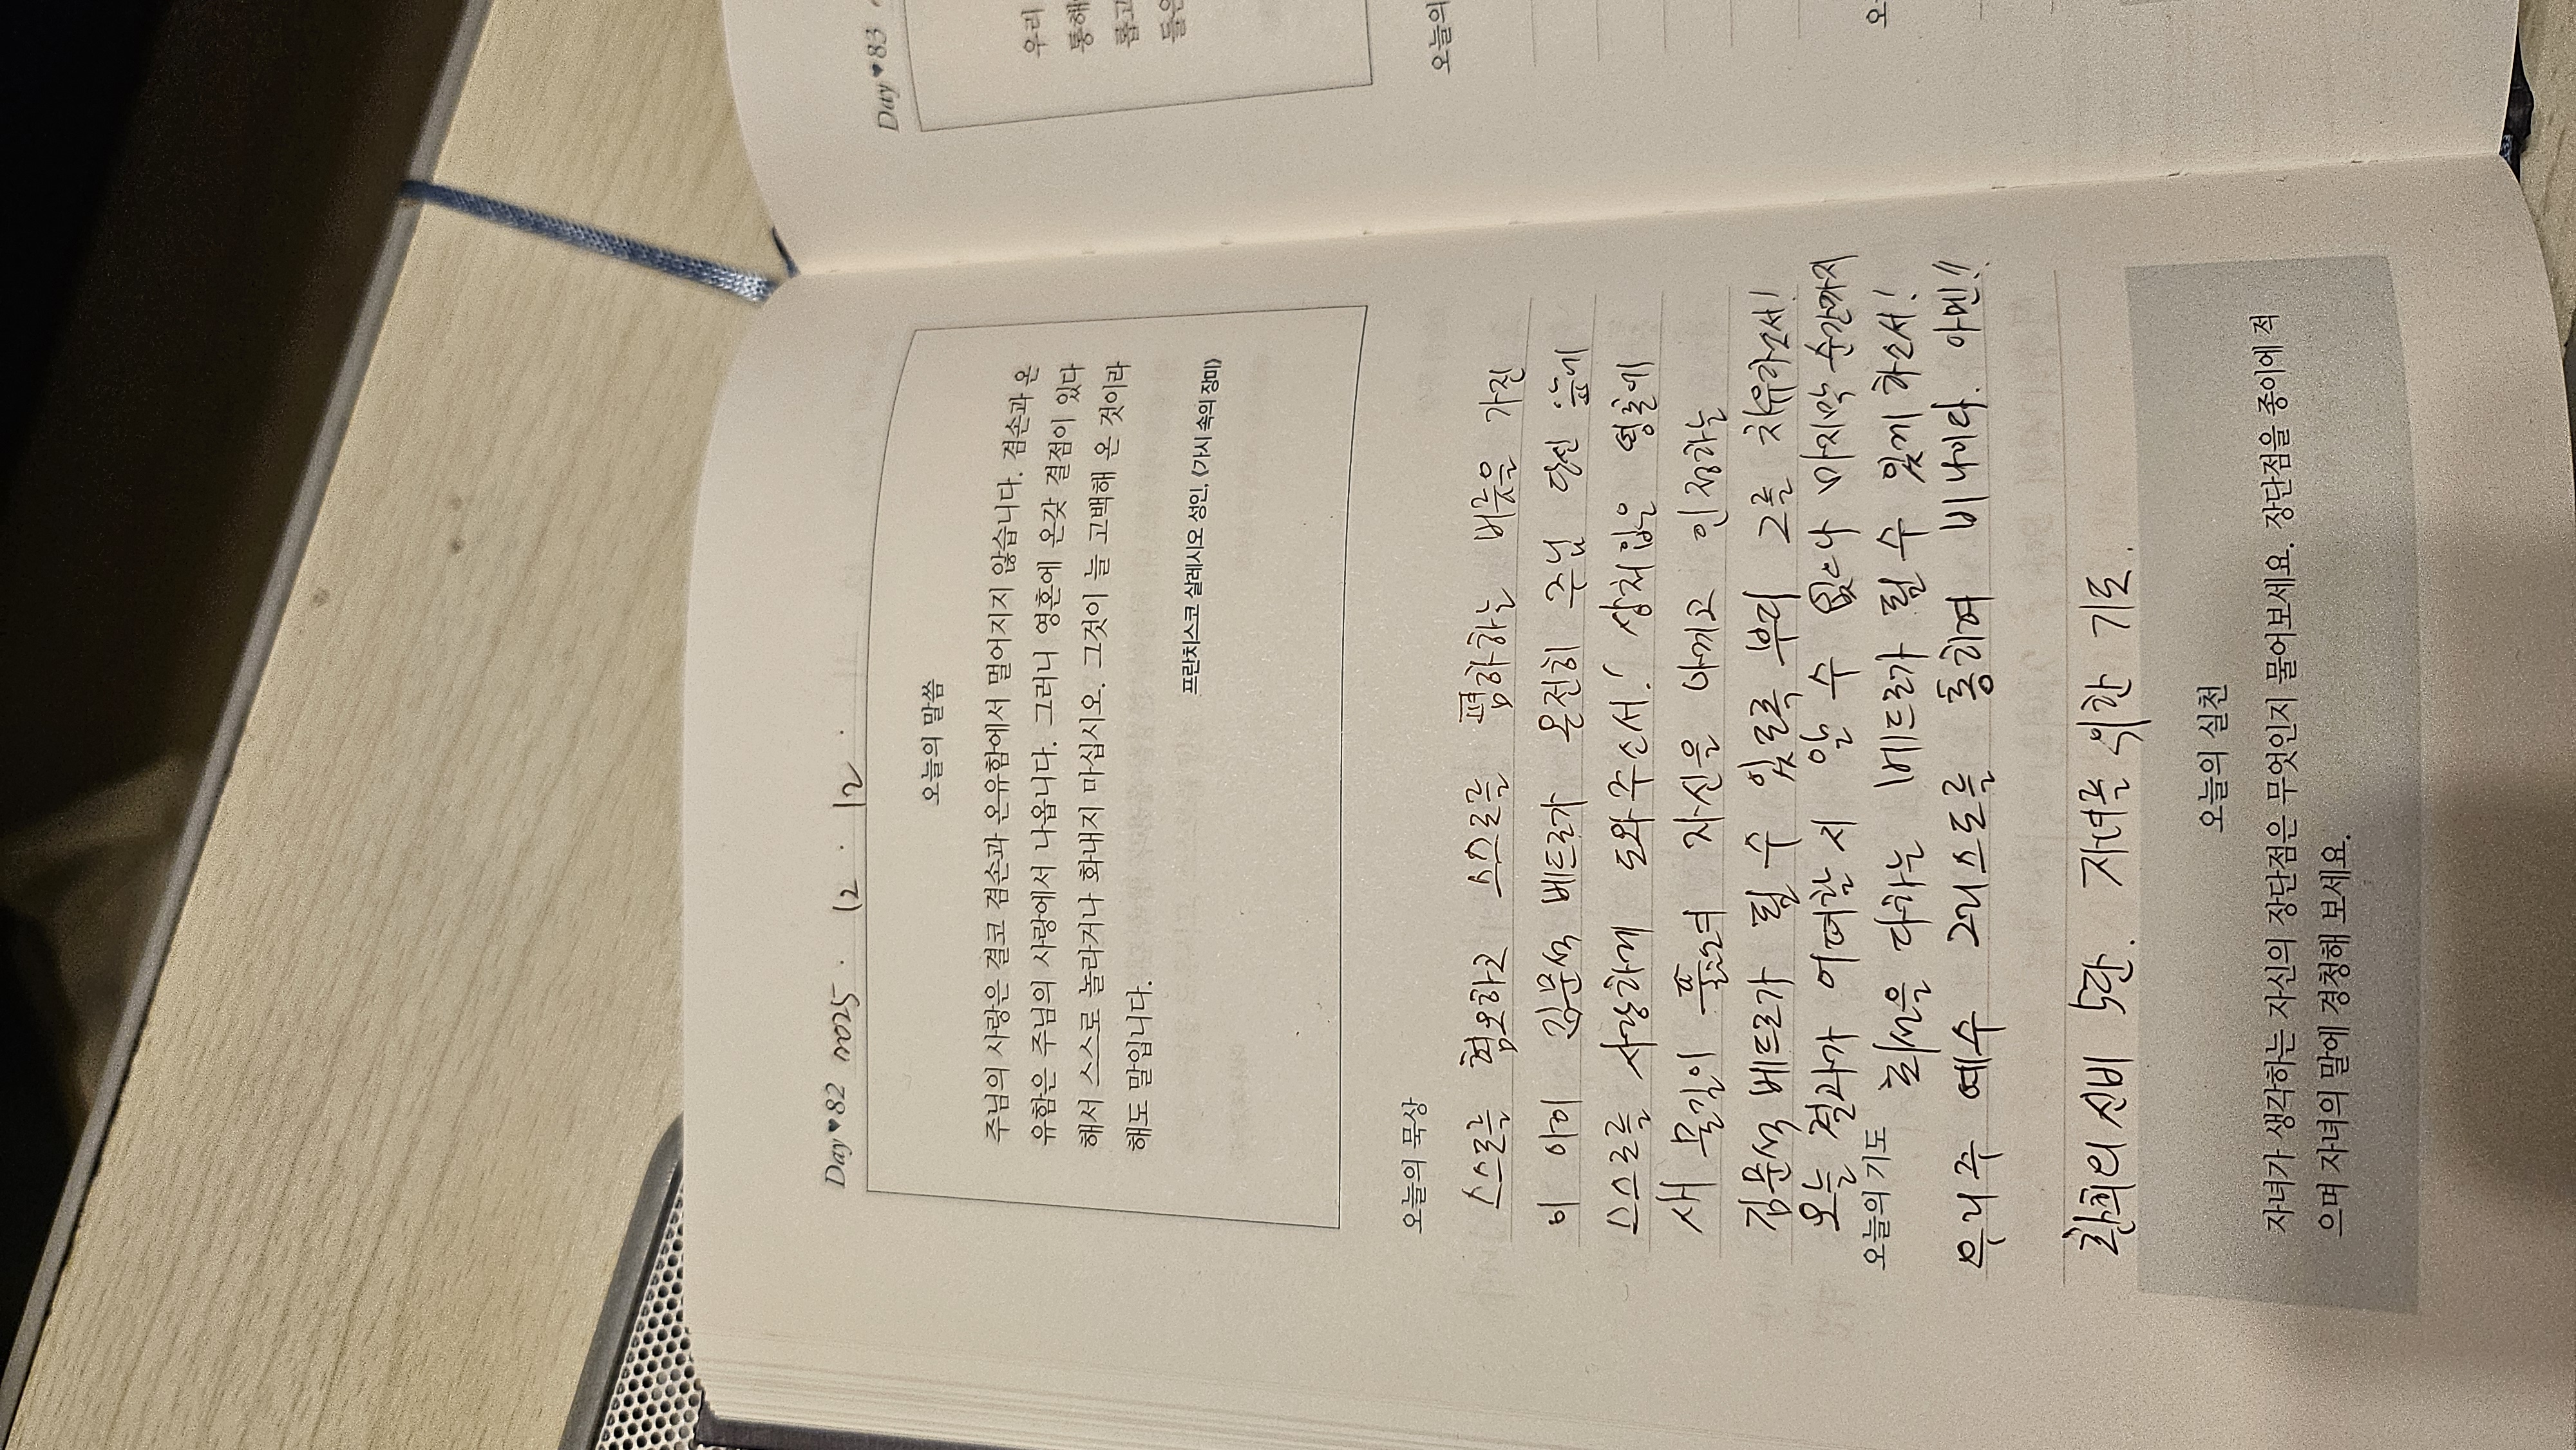 Day ♥ 82 2025. 12. 12.
오늘의 말씀
주님의 사랑은 결코 겸손과 온유함에서 멀어지지 않습니다. 겸손과 온
유함은 주님의 사랑에서 나옵니다. 그러니 영혼에 온갖 결점이 있다
해서 스스로 놀라거나 화내지 마십시오. 그것이 늘 고백해 온 것이라
해도 말입니다.
프란치스코 살레시오 성인, 《가시 속의 장미》
오늘의 묵상
스스로를 혐오하고 스스로를 폄하하는 버릇을 가진
이 아이 김문석 베드로가 온전히 주님 당신 앞에
스스로를 사랑하게 도와주소서! 상처입은 영혼에
새 물길이 품으며 자신을 아끼고 인정하는
김문석 베드로가 될 수 있도록 부디 그를 치유하소서!
오늘 결과가 어떠할 지 알 수 없으나 마지막 순간까지
오늘의 기도
최선을 다하는 베드로가 될 수 있게 하소서!
우리 주 예수 그리스도를 통하여 비나이다. 아멘!!
환희의 신비 5단. 자녀를 위한 기도.
오늘의 실천
자녀가 생각하는 자신의 장단점은 무엇인지 물어보세요. 장단점을 종이에 적
으며 자녀의 말에 경청해 보세요.
Day ♥ 83
우리
통해
롭고
들은
오늘의
오